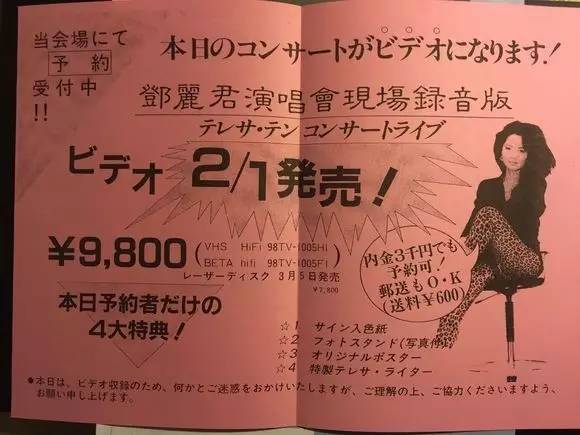 当会場にて
予約
受付中
!!
本日のコンサートがビデオになります!
鄧麗君演唱會現場録音版
テレサ・テン コンサートライブ
ビデオ 2/1発売!
¥9,800
(VHS HiFi 98TV-1005HI
BETA hifi 98TV-1005FI)
レーザーディスク 3月5日発売
¥7,800
内金3千円でも
予約可!
郵送もO・K
(送料¥600)
本日予約者だけの
4大特典!
☆1 サイン入色紙
☆2 フォトスタンド(写真付)
☆3 オリジナルポスター
☆4 特製テレサ・ライター
●本日は、ビデオ収録のため、何かとご迷惑をおかけいたしますが、ご理解の上、ご協力くださいますよう、
お願い申し上げます。